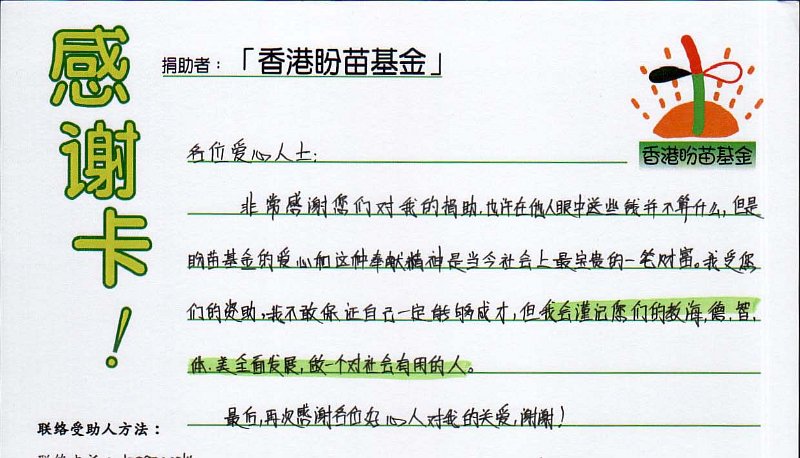 感谢卡!
捐助者:「香港盼苗基金」
香港盼苗基金
各位爱心人士:
非常感谢您们对我的捐助,也许在他人眼中这些钱并不算什么,但是
盼苗基金的爱心和这种奉献精神是当今社会上最宝贵的一笔财富。我受您
们的资助,我不敢保证自己一定能够成才,但我会谨记您们的教诲,德.智.
体.美全面发展,做一个对社会有用的人。
最后,再次感谢各位好心人对我的关爱,谢谢!
联络受助人方法: